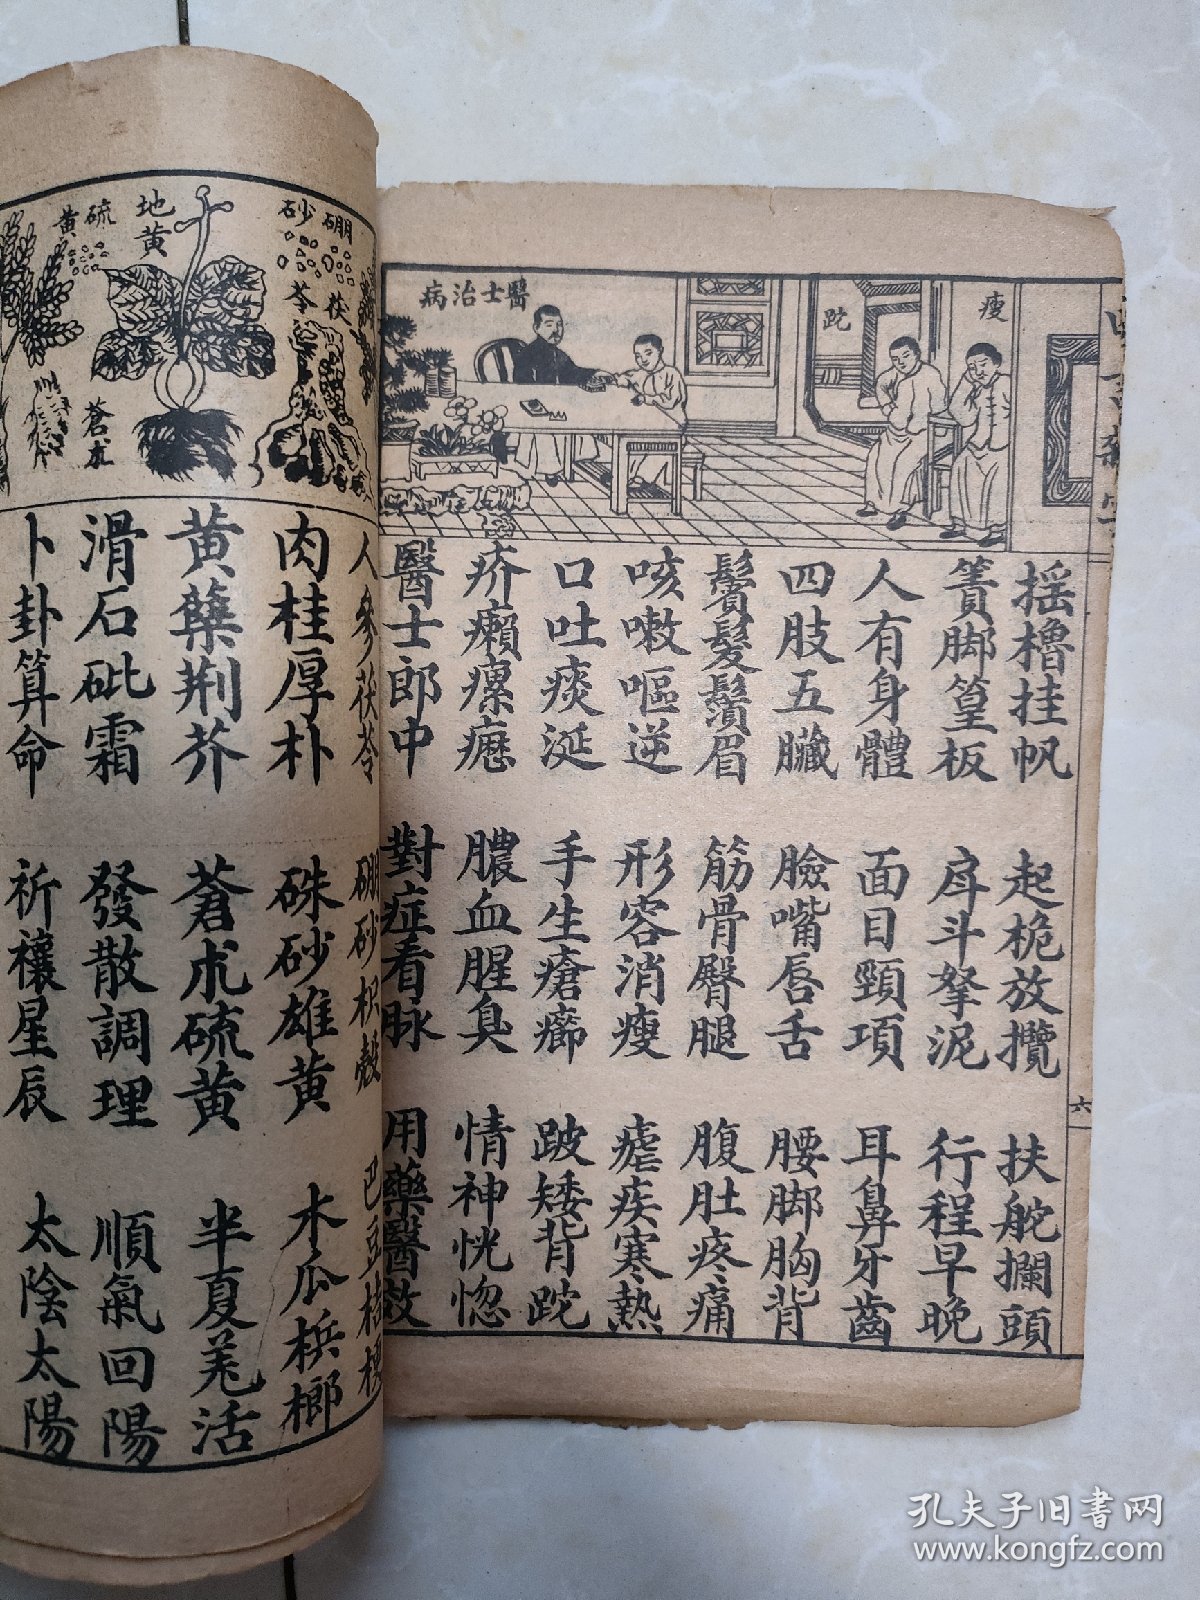 醫士治病
跎
瘦
摇櫓挂帆 起桅放攬 扶舵攔頭
簀脚篁板 戽斗拏泥 行程早晚
人有身體 面目頸項 耳鼻牙齒
四肢五臟 臉嘴唇舌 腰脚胸背
鬢髮鬚眉 筋骨臀腿 腹肚疼痛
咳嗽嘔逆 形容消瘦 瘧疾寒熱
口吐痰涎 手生瘡癤 跛矮背跎
疥癩瘰癧 膿血腥臭 情神恍惚
醫士郎中 對症看脉 用藥醫效
六
硼砂
茯苓
地黄
硫黄
蒼朮
人參茯苓 硼砂枳殼 巴豆桔梗
肉桂厚朴 硃砂雄黄 木瓜梹榔
黄蘗荆芥 蒼朮硫黄 半夏羌活
滑石砒霜 發散調理 順氣回陽
卜卦算命 祈禳星辰 太陰太陽
孔夫子旧书网
www.kongfz.com